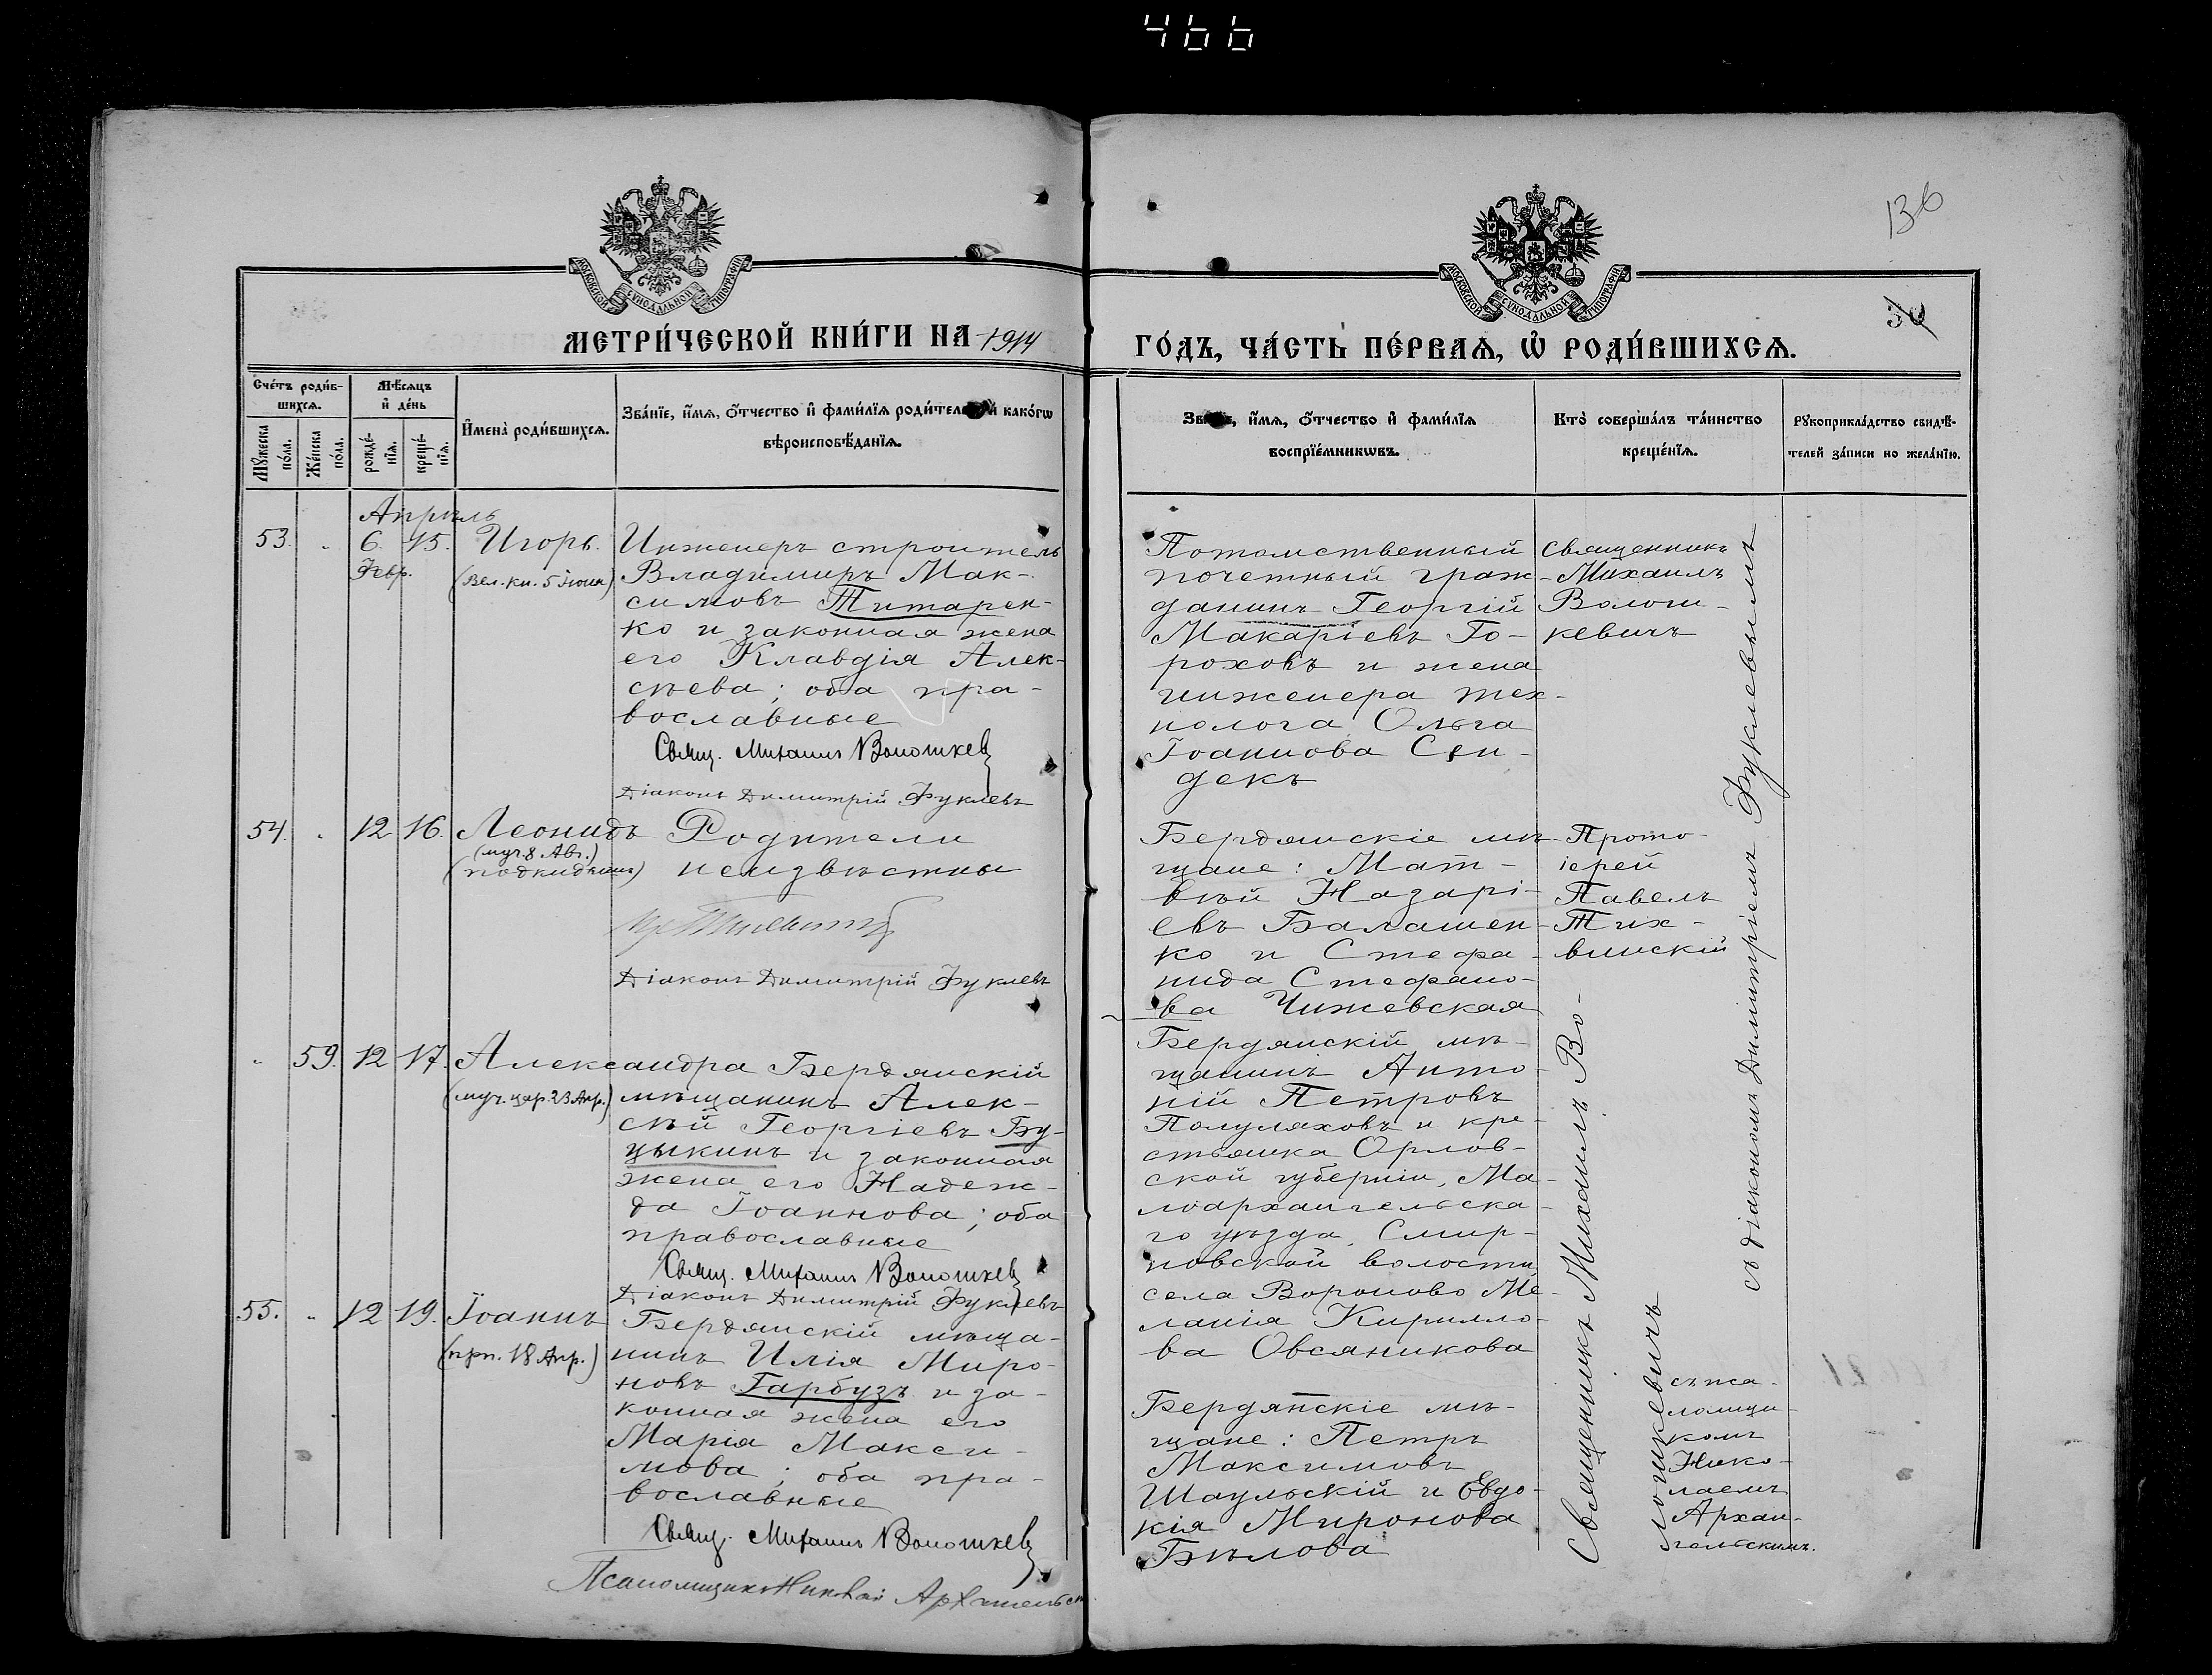 466
136
30
МОСКОВСКОЙ СѴНОДАЛЬНОЙ ТИПОГРАФІИ
МОСКОВСКОЙ СѴНОДАЛЬНОЙ ТИПОГРАФІИ
МЕТРИ́ЧЕСКОЙ КНИ́ГИ НА 1914
ГО́ДЪ, ЧА́СТЬ ПЕ́РВАѦ, Ѡ҆ РОДИ́ВШИХСѦ.
Сче́тъ роди́в-
шихсѧ.
Мꙋ́жеска
по́ла.
Же́нска
по́ла.
Мѣ́сѧцъ
и҆ де́нь
рожде́-
нїѧ.
креще́-
нїѧ.
И҆мена̀ роди́вшихсѧ.
Зва́нїе, и҆́мѧ, ѻ҆́тчество и҆ фами́лїѧ роди́телей и҆ како́гѡ
вѣроисповѣ́данїѧ.
Зва́нїе, и҆́мѧ, ѻ҆́тчество и҆ фами́лїѧ
воспрїе́мникѡвъ.
Кто̀ соверша́лъ та́инство
креще́нїѧ.
Рꙋкоприкла́дство свидѣ́-
телей за́писи по жела́нїю.
Апрѣль
53. " 6. 15. Игорь.
Февр.
(Вел. кн. 5 Іюня)
Инженеръ строитель
Владимиръ Мак-
симовъ Титарен-
ко и законная жена
его Клавдія Алек-
сѣева; оба пра-
вославные
Свящ. Михаилъ Волошкев
Діаконъ Димитрій Фуклевъ
Потомственный
почетный граж-
данинъ Георгій
Макаріевъ Го-
роховъ и жена
инженера тех-
нолога Ольга
Іоаннова Сен-
декъ
Священникъ
Михаилъ
Волош-
кевичъ
54. " 12 16. Леонидъ
(муч. 8 Авг.)
(подкидышъ)
Родители
неизвѣстны
Діаконъ Димитрій Фуклевъ
Бердянскіе мѣ-
щане: Мат-
вѣй Назарі-
евъ Балашен-
ко и Стефа-
нида Стефано-
ва Чижевская
Прото-
іерей
Павелъ
Тих-
винскій
" 59. 12 17. Александра
(муч. цар. 23 Апр.)
Бердянскій
мѣщанинъ Алек-
сѣй Георгіевъ Бу-
цыкинъ и законная
жена его Надеж-
да Іоаннова; оба
православные
Свящ. Михаилъ Волошкев
Діаконъ Димитрій Фуклевъ
Бердянскій мѣ-
щанинъ Анто-
ній Петровъ
Полуляховъ и кре-
стьянка Орлов-
ской губерніи, Ма-
лоархангельска-
го уѣзда, Смир-
новской волости
села Вороново Ме-
ланія Кирилло-
ва Овсяникова
55. " 12 19. Іоаннъ
(прп. 18 Апр.)
Бердянскій мѣща-
нинъ Илія Миро-
новъ Гарбузъ и за-
конная жена его
Марія Макси-
мова; оба пра-
вославные
Свящ. Михаилъ Волошкев
Псаломщикъ Николай Архангельск
Бердянскіе мѣ-
щане: Петръ
Максимовъ
Шаульскій и Евдо-
кія Миронова
Бѣлова
Священникъ Михаилъ Во-
лошкевичъ
съ діакономъ Димитріемъ Фуклевымъ
съ пса-
ломщи-
комъ
Нико-
лаемъ
Архан-
гельскимъ.